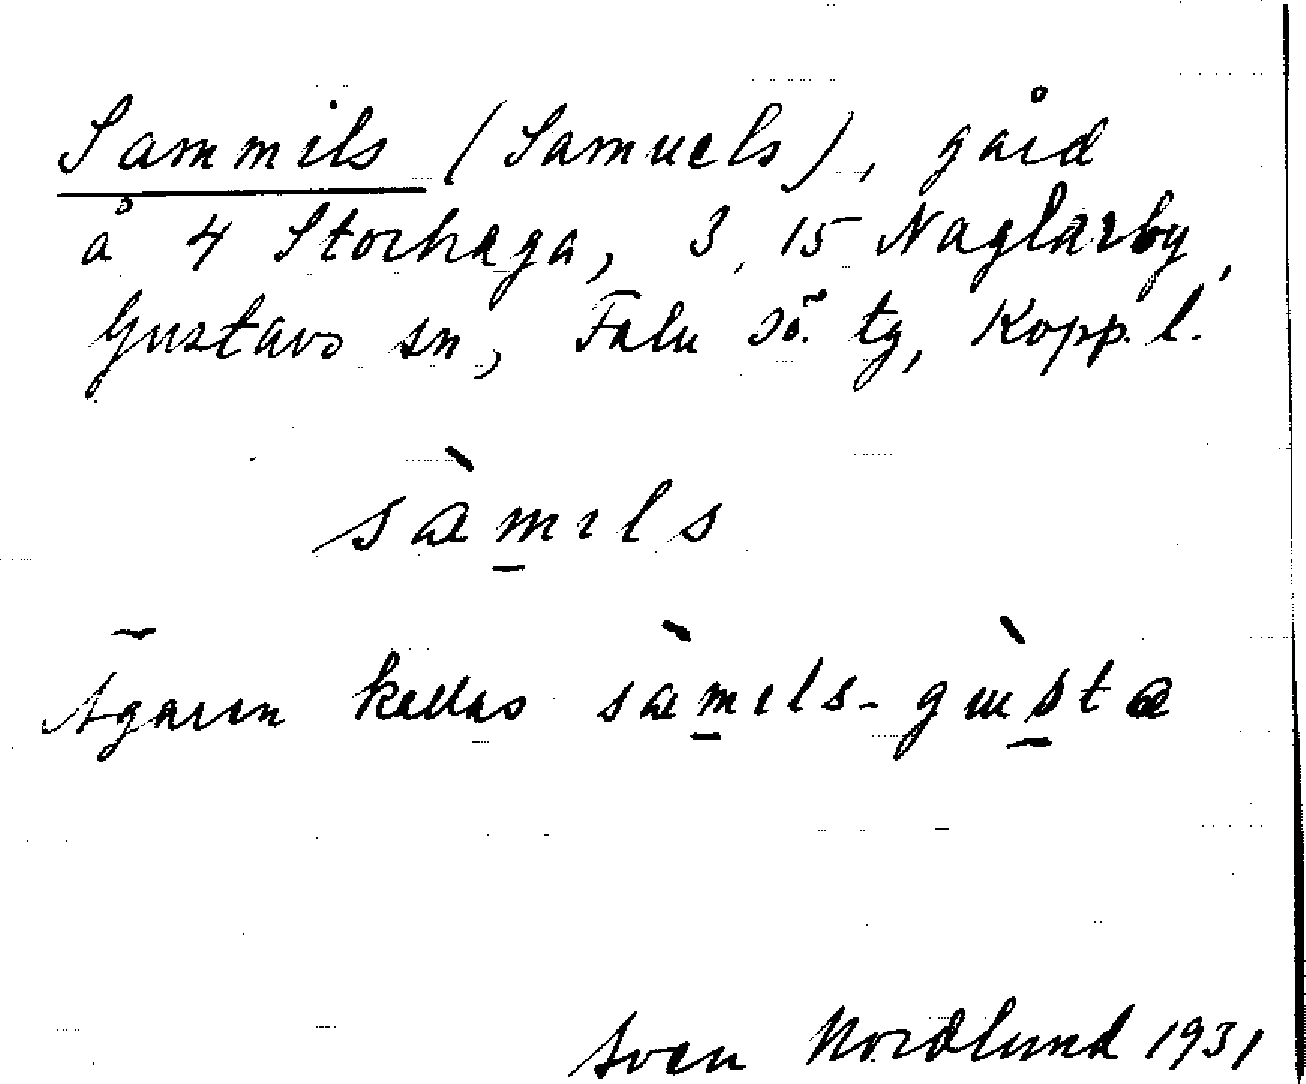 Sammils (Samuels), gård
å 4 Storhaga, 3, 15 Naglarby,
Gustavs sn, Falu sö. tg, Kopp. l.
sàm̠ıls
Ägaren kallas sàm̠ıls-gùs̠ta
Sven Nordlund 1931